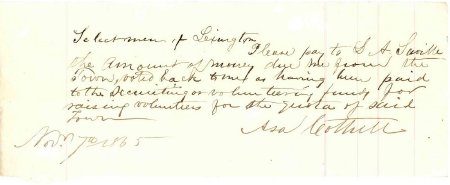 Selectmen of Lexington
Please pay to S A Saville
the Amount of money due me from the
Town, voted back to me as having been paid
to the Recruiting or volunteering fund, for
raising volunteers for the quota of said
Town
Asa Cottrell
Nov. 7th 1865